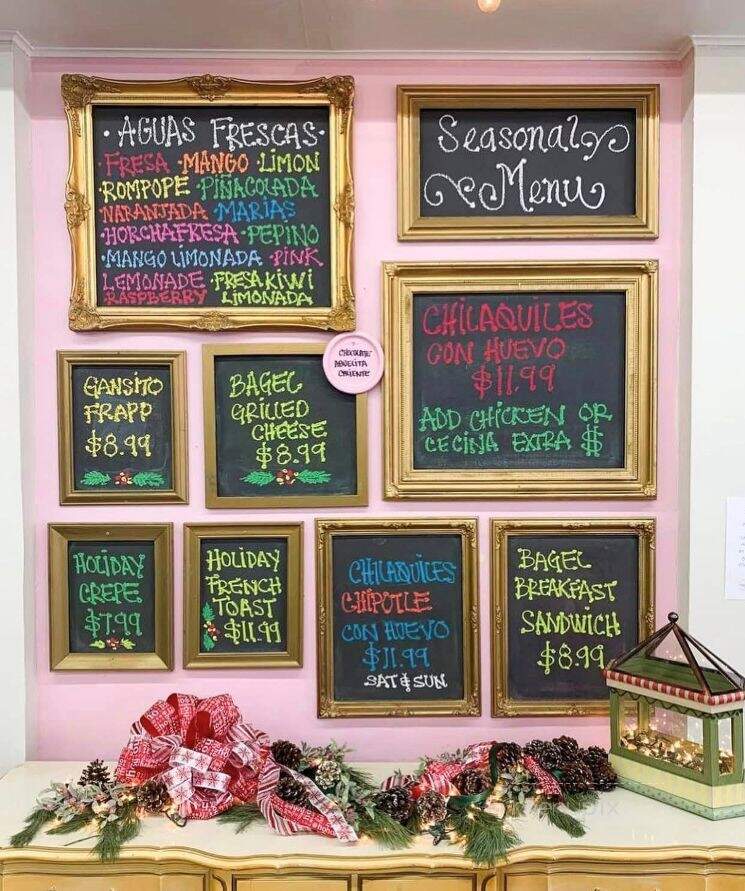 · AGUAS FRESCAS·
FRESA ·MANGO ·LIMON
·ROMPOPE ·PIÑACOLADA
NARANJADA ·MARIAS
·HORCHAFRESA ·PEPINO
·MANGO LIMONADA ·PINK
LEMONADE ·FRESA KIWI
RASPBERRY LIMONADA
Seasonal
Menu
CHILAQUILES
CON HUEVO
$11.99
ADD CHICKEN OR
CECINA EXTRA $
CHOCOLATE
ABUELITA
CALIENTE
GANSITO
FRAPP
$8.99
BAGEL
GRILLED
CHEESE
$8.99
HOLIDAY
CREPE
$7.99
HOLIDAY
FRENCH
TOAST
$11.99
CHILAQUILES
CHIPOTLE
CON HUEVO
$11.99
SAT & SUN
BAGEL
BREAKFAST
SANDWICH
$8.99